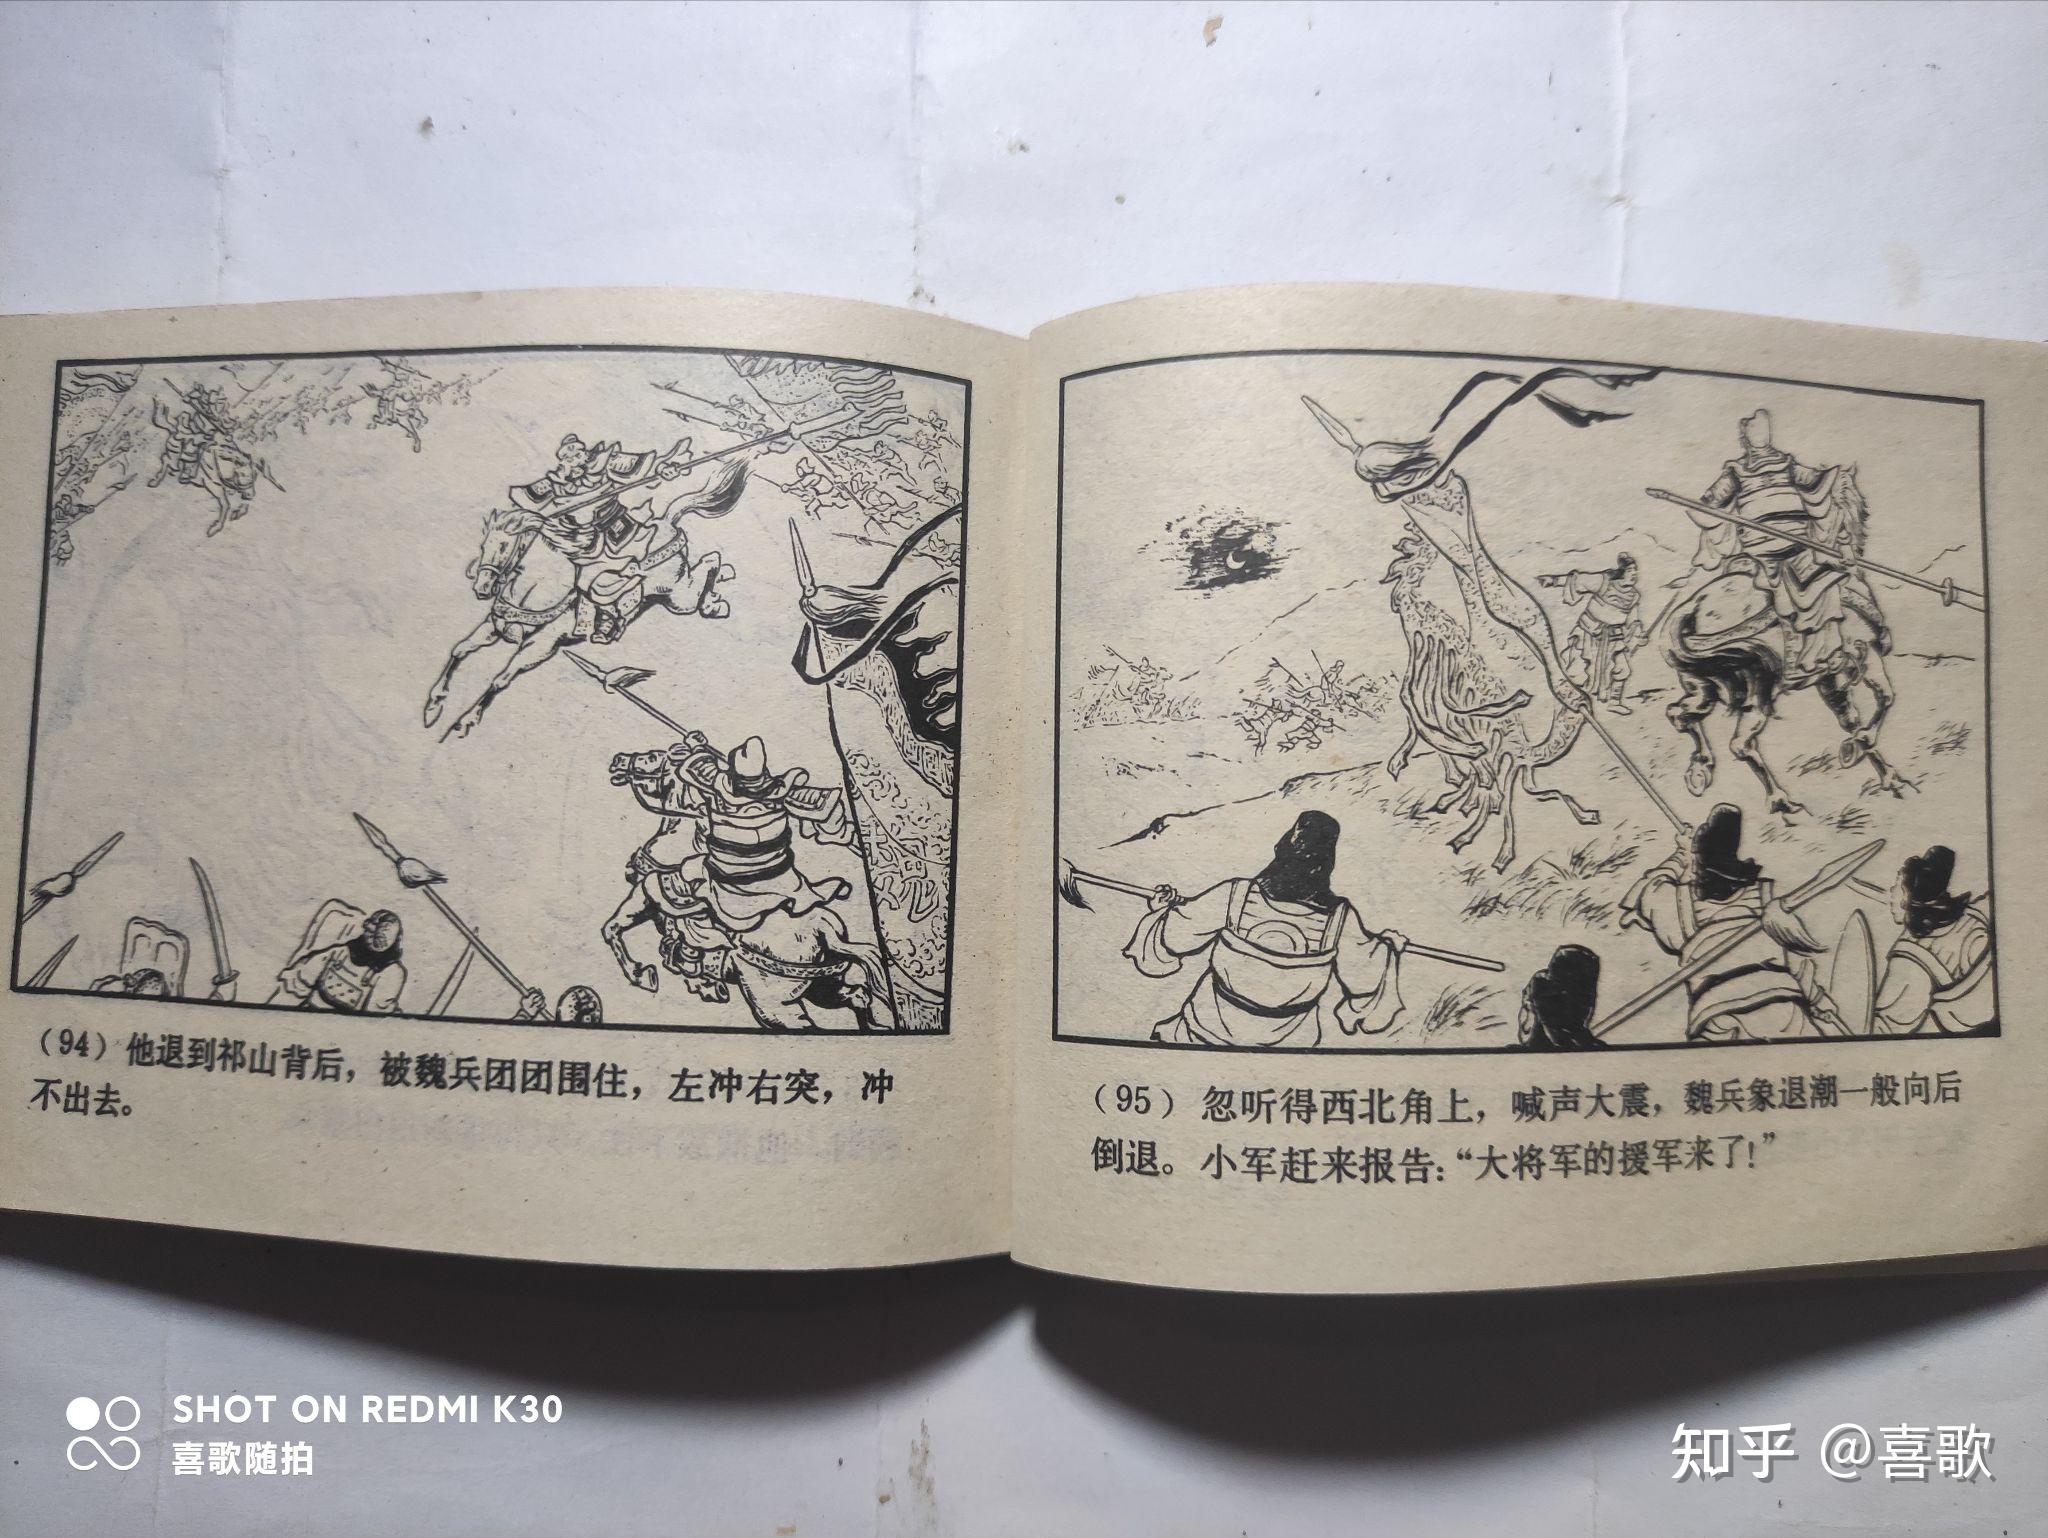 （94）他退到祁山背后，被魏兵团团围住，左冲右突，冲
不出去。
（95）忽听得西北角上，喊声大震，魏兵象退潮一般向后
倒退。小军赶来报告：“大将军的援军来了！”
SHOT ON REDMI K30
喜歌随拍
知乎 @喜歌